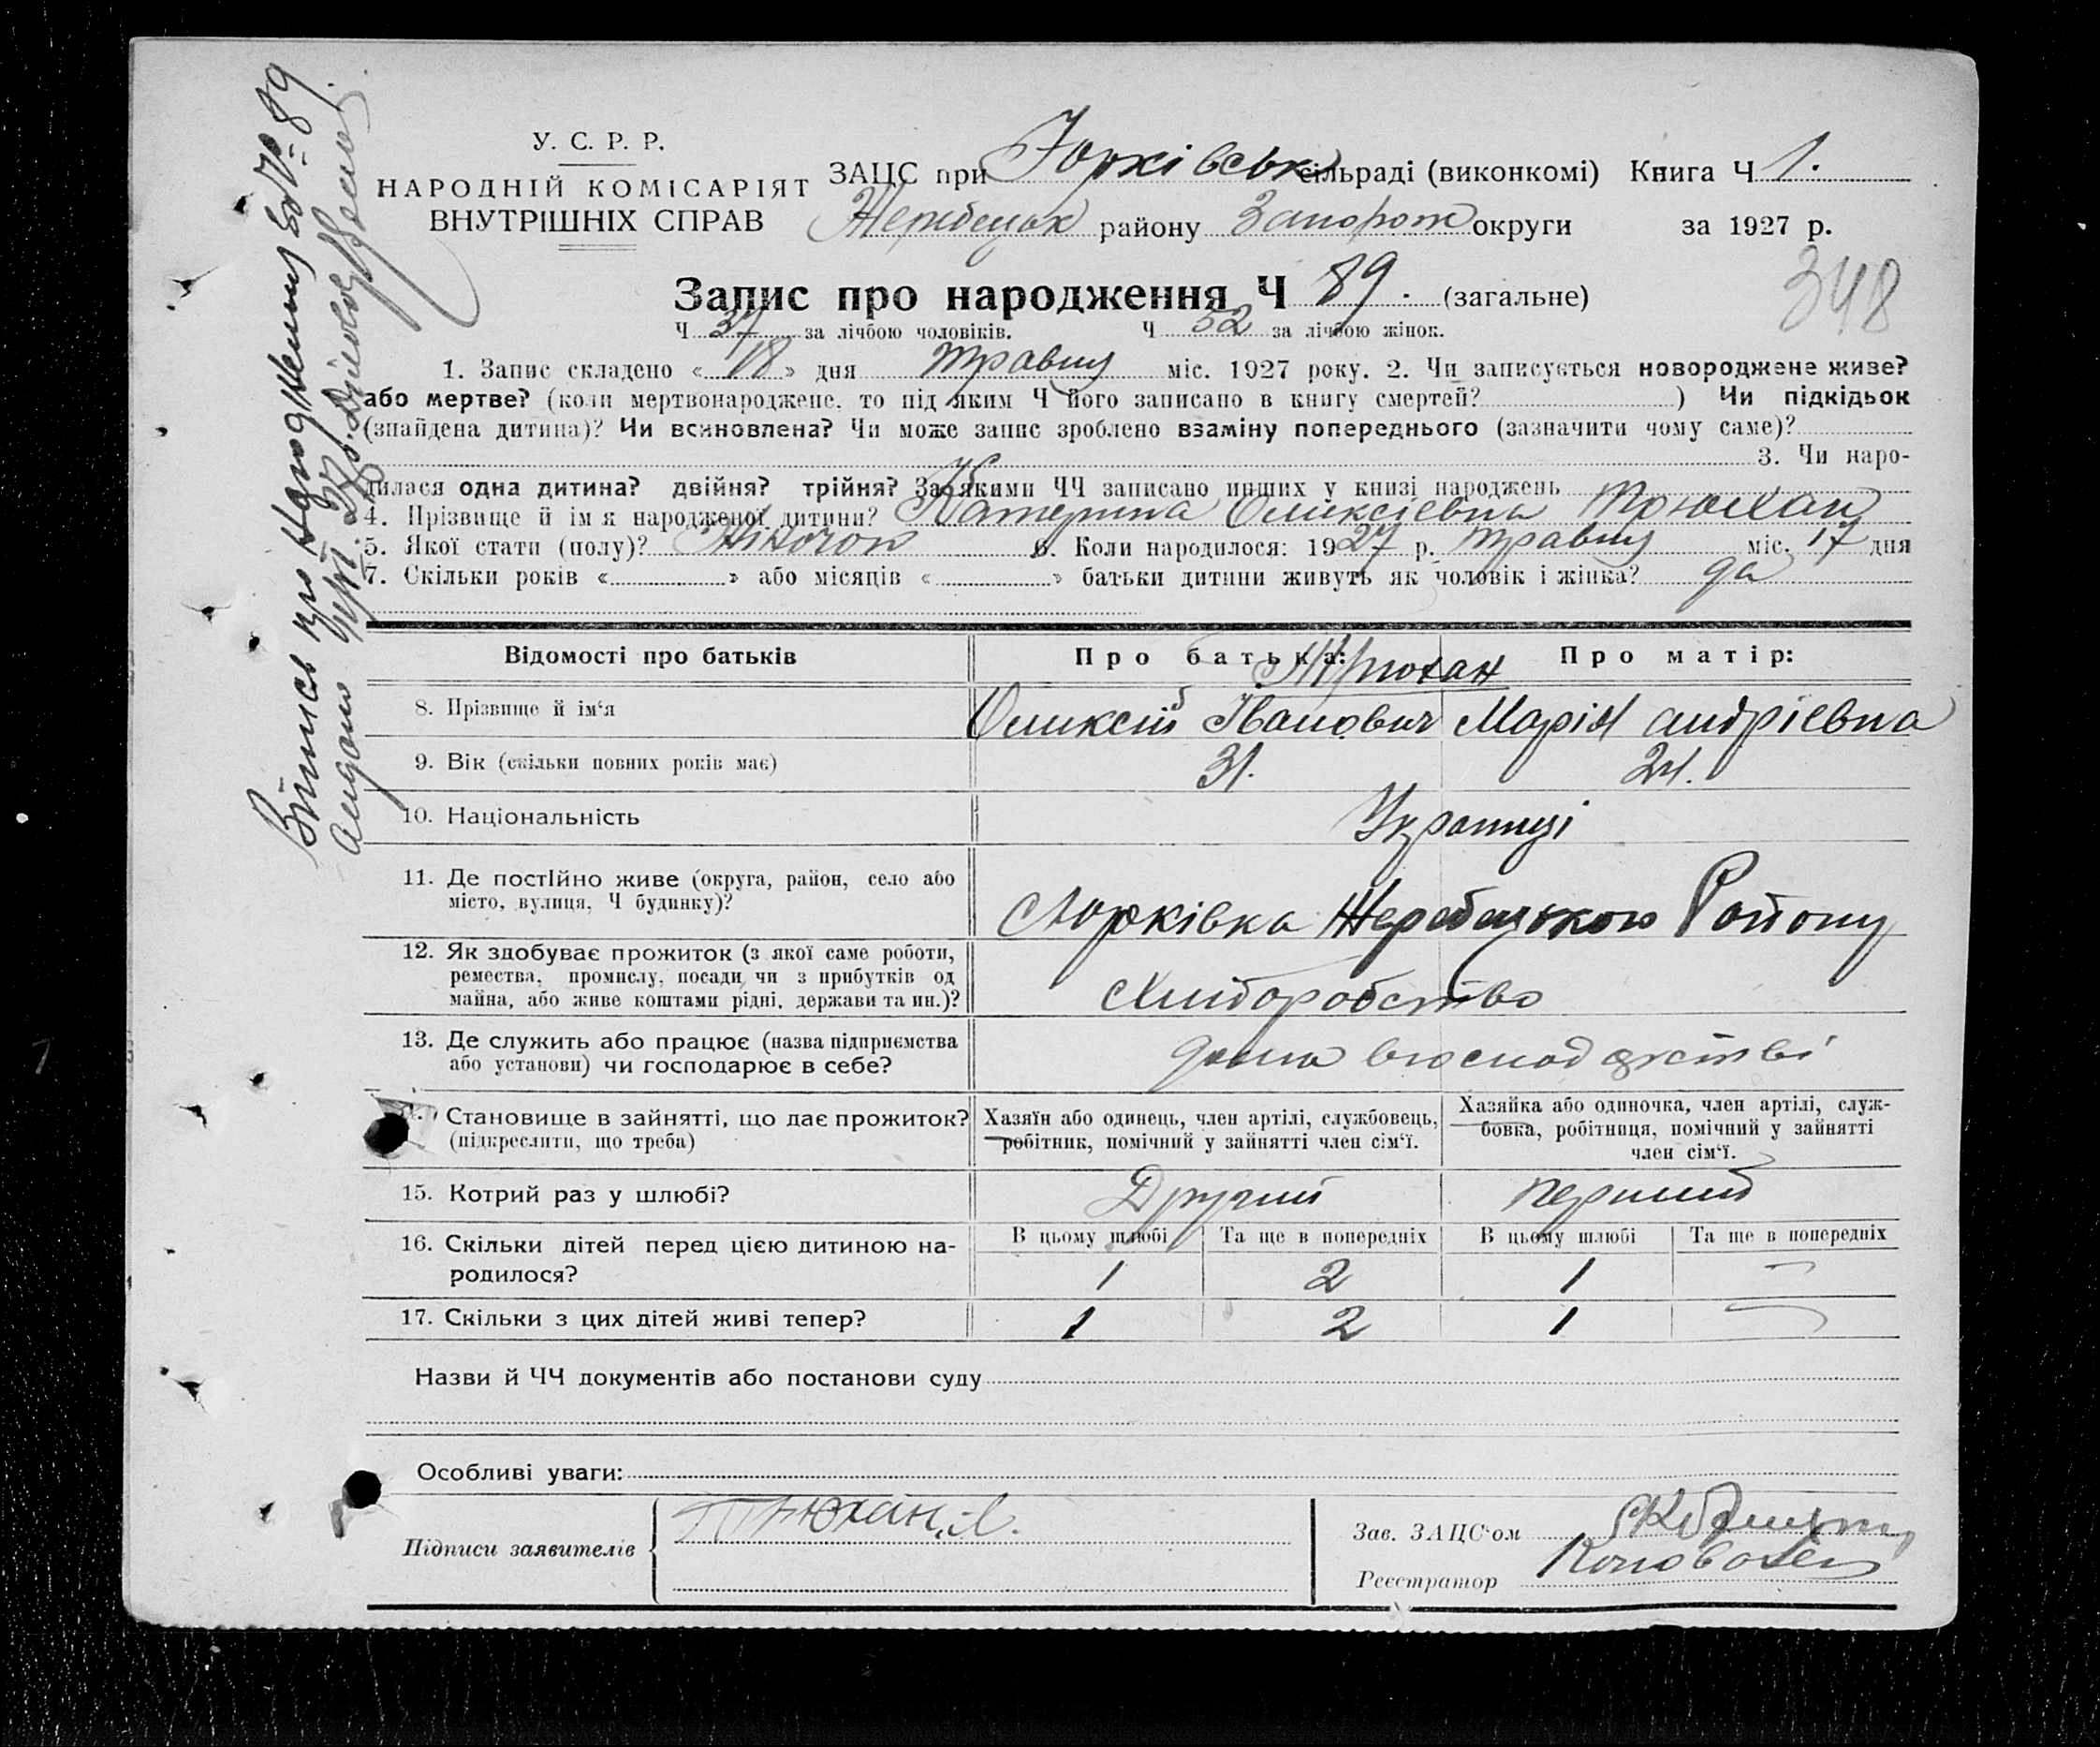 У. С. Р. Р.
НАРОДНІЙ КОМІСАРІЯТ
ВНУТРІШНІХ СПРАВ
ЗАЦС при Юрківськ сільраді (виконкомі) Книга Ч 1.
Жеребецьк району Запорож округи за 1927 р.
348
Запис про народження Ч 89. (загальне)
Ч 37 за лічбою чоловіків. Ч 52 за лічбою жінок.
1. Запис складено « 18 » дня травня міс. 1927 року. 2. Чи записується новороджене живе?
або мертве? (коли мертвонароджене, то під яким Ч його записано в книгу смертей? ) Чи підкідьок
(знайдена дитина)? Чи всиновлена? Чи може запис зроблено взаміну попереднього (зазначити чому саме)?
3. Чи наро-
дилася одна дитина? двійня? трійня? За якими ЧЧ записано инших у книзі народжень
4. Прізвище й ім'я народженої дитини? Катерина Оликсіевна Трюхан
5. Якої стати (полу)? Жіночои 6. Коли народилося: 1927 р. травня міс. 17 дня
7. Скільки років « » або місяців « » батьки дитини живуть як чоловік і жінка? да
Відомості про батьків Про батька: Про матір:
Трюхан
8. Прізвище й ім'я Оликсій Іванович Марія андріевна
9. Вік (скільки повних років має) 31. 24.
10. Національність Украинці
11. Де постійно живе (округа, район, село або
місто, вулиця, Ч будинку)?
Юрківка Жеребецького Району
12. Як здобуває прожиток (з якої саме роботи,
ремества, промислу, посади чи з прибутків од
майна, або живе коштами рідні, держави та ин.)?
Хліборобство
13. Де служить або працює (назва підприємства
або установи) чи господарює в себе?
дома
14. Становище в зайнятті, що дає прожиток?
(підкреслити, що треба)
Хазяїн або одинець, член артілі, службовець,
робітник, помічний у зайнятті член сім'ї.
Хазяйка або одиночка, член артілі, служ-
бовка, робітниця, помічний у зайнятті
член сім'ї.
15. Котрий раз у шлюбі? Другий перший
16. Скільки дітей перед цією дитиною на-
родилося?
В цьому шлюбі Та ще в попередніх В цьому шлюбі Та ще в попередніх
1 2 1 -
17. Скільки з цих дітей живі тепер? 1 2 1 -
Назви й ЧЧ документів або постанови суду
Особливі уваги:
Підписи заявителів Трюхан, А.
Зав. ЗАЦС'ом
Реєстратор Коновалец
Витись про Народження за № 89